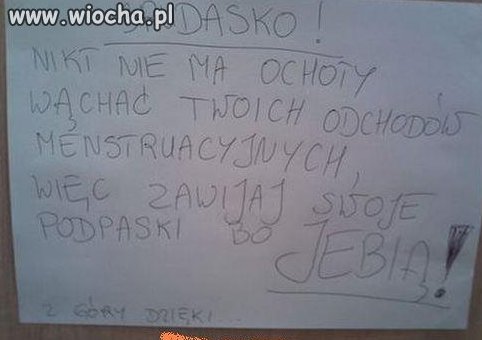 www.wiocha.pl
BRUDASKO!
NIKT NIE MA OCHOTY
WĄCHAĆ TWOICH ODCHODÓW
MENSTRUACYJNYCH,
WIĘC ZAWIJAJ SWOJE
PODPASKI BO
JEBIĄ!
Z GÓRY DZIĘKI...